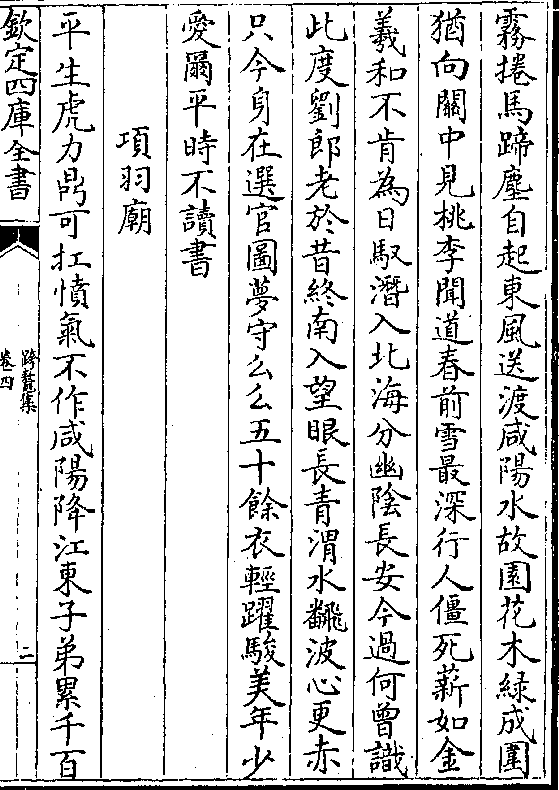 霧捲馬蹄塵自起東風送渡咸陽水故園花木緑成圍
猶向闗中見桃李聞道春前雪最深行人僵死薪如金
羲和不肯為日馭潛入北海分幽陰長安今過何曾識
此度劉郎老於昔終南入望眼長青渭水飜波心更赤
只今身在選官圖夢守么么五十餘衣輕躍駿美年少
愛爾平時不讀書
項羽廟
平生虎力鼎可扛憤氣不作咸陽降江東子弟累千百
欽定四庫全書
跨鼇集
卷四
二